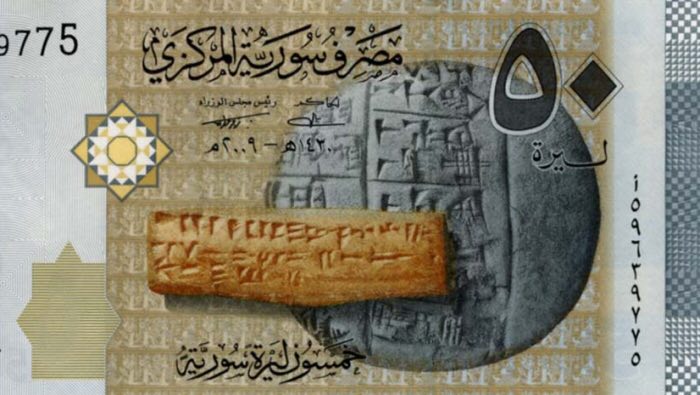 9775
مصرف سورية المركزي
٥٠
ليرة
الحاكم
رئيس مجلس الوزراء
١٤٣٠هـ - ٢٠٠٩م
أ٥٩٦٣٩٧٧٥
خمسون ليرة سورية